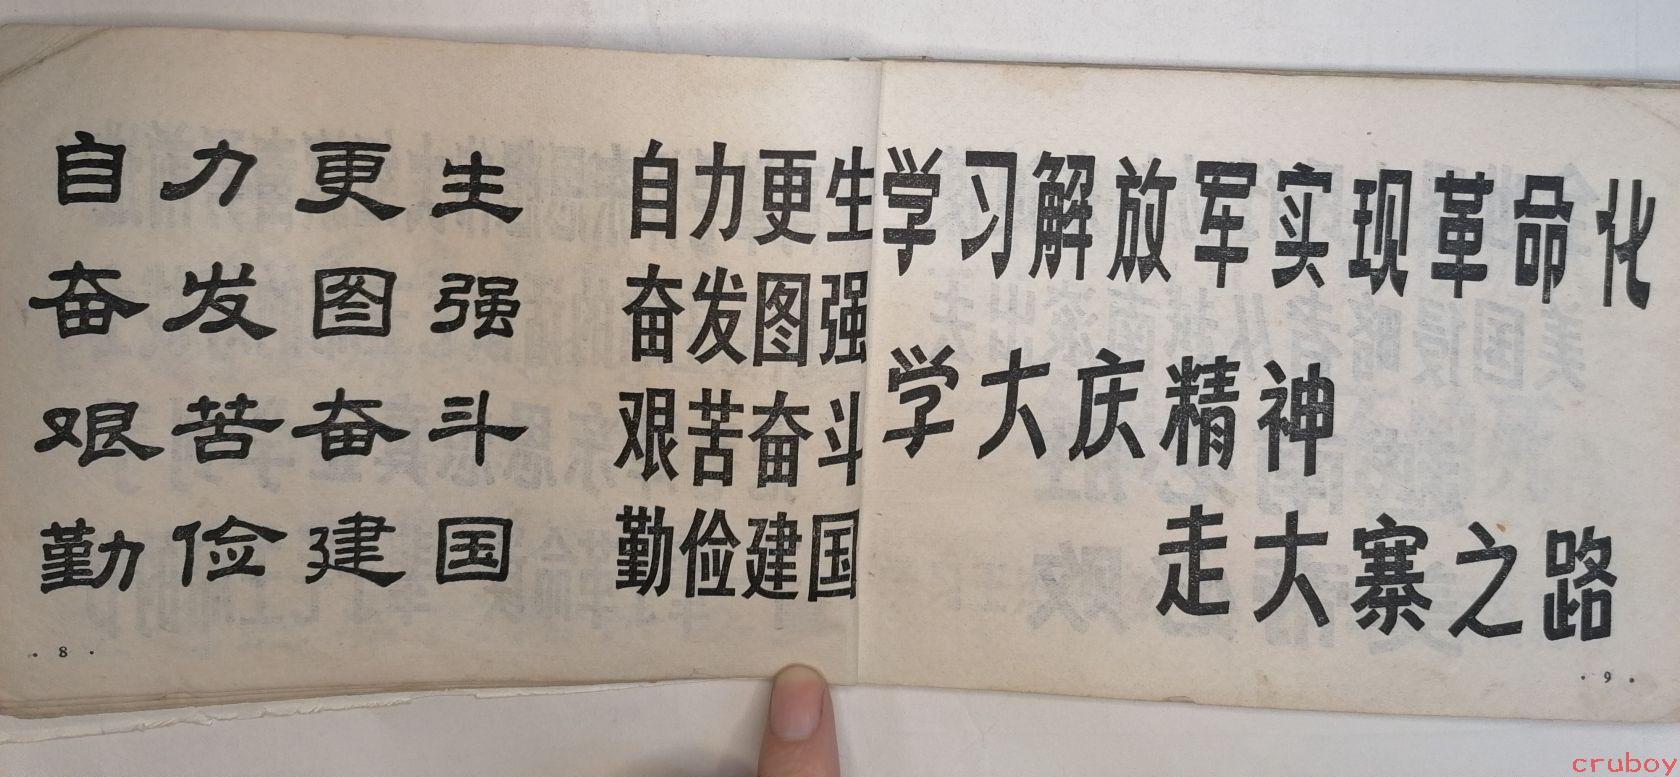 自力更生
奋发图强
艰苦奋斗
勤俭建国
自力更生
奋发图强
艰苦奋斗
勤俭建国
· 8 ·
学习解放军实现革命化
学大庆精神
走大寨之路
· 9 ·
cruboy